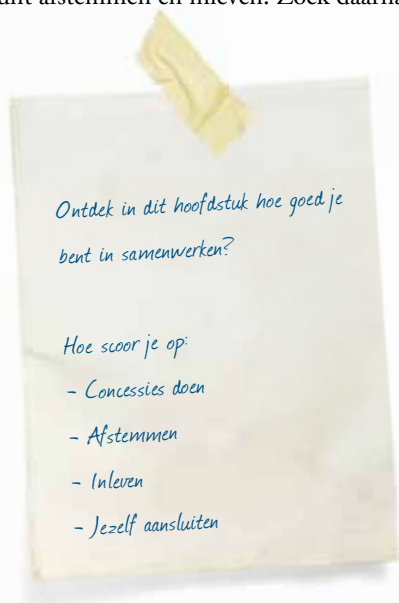 unt afstemmen en inleven. Zoek daarna
Ontdek in dit hoofdstuk hoe goed je
bent in samenwerken?
Hoe scoor je op:
- Concessies doen
- Afstemmen
- Inleven
- Jezelf aansluiten